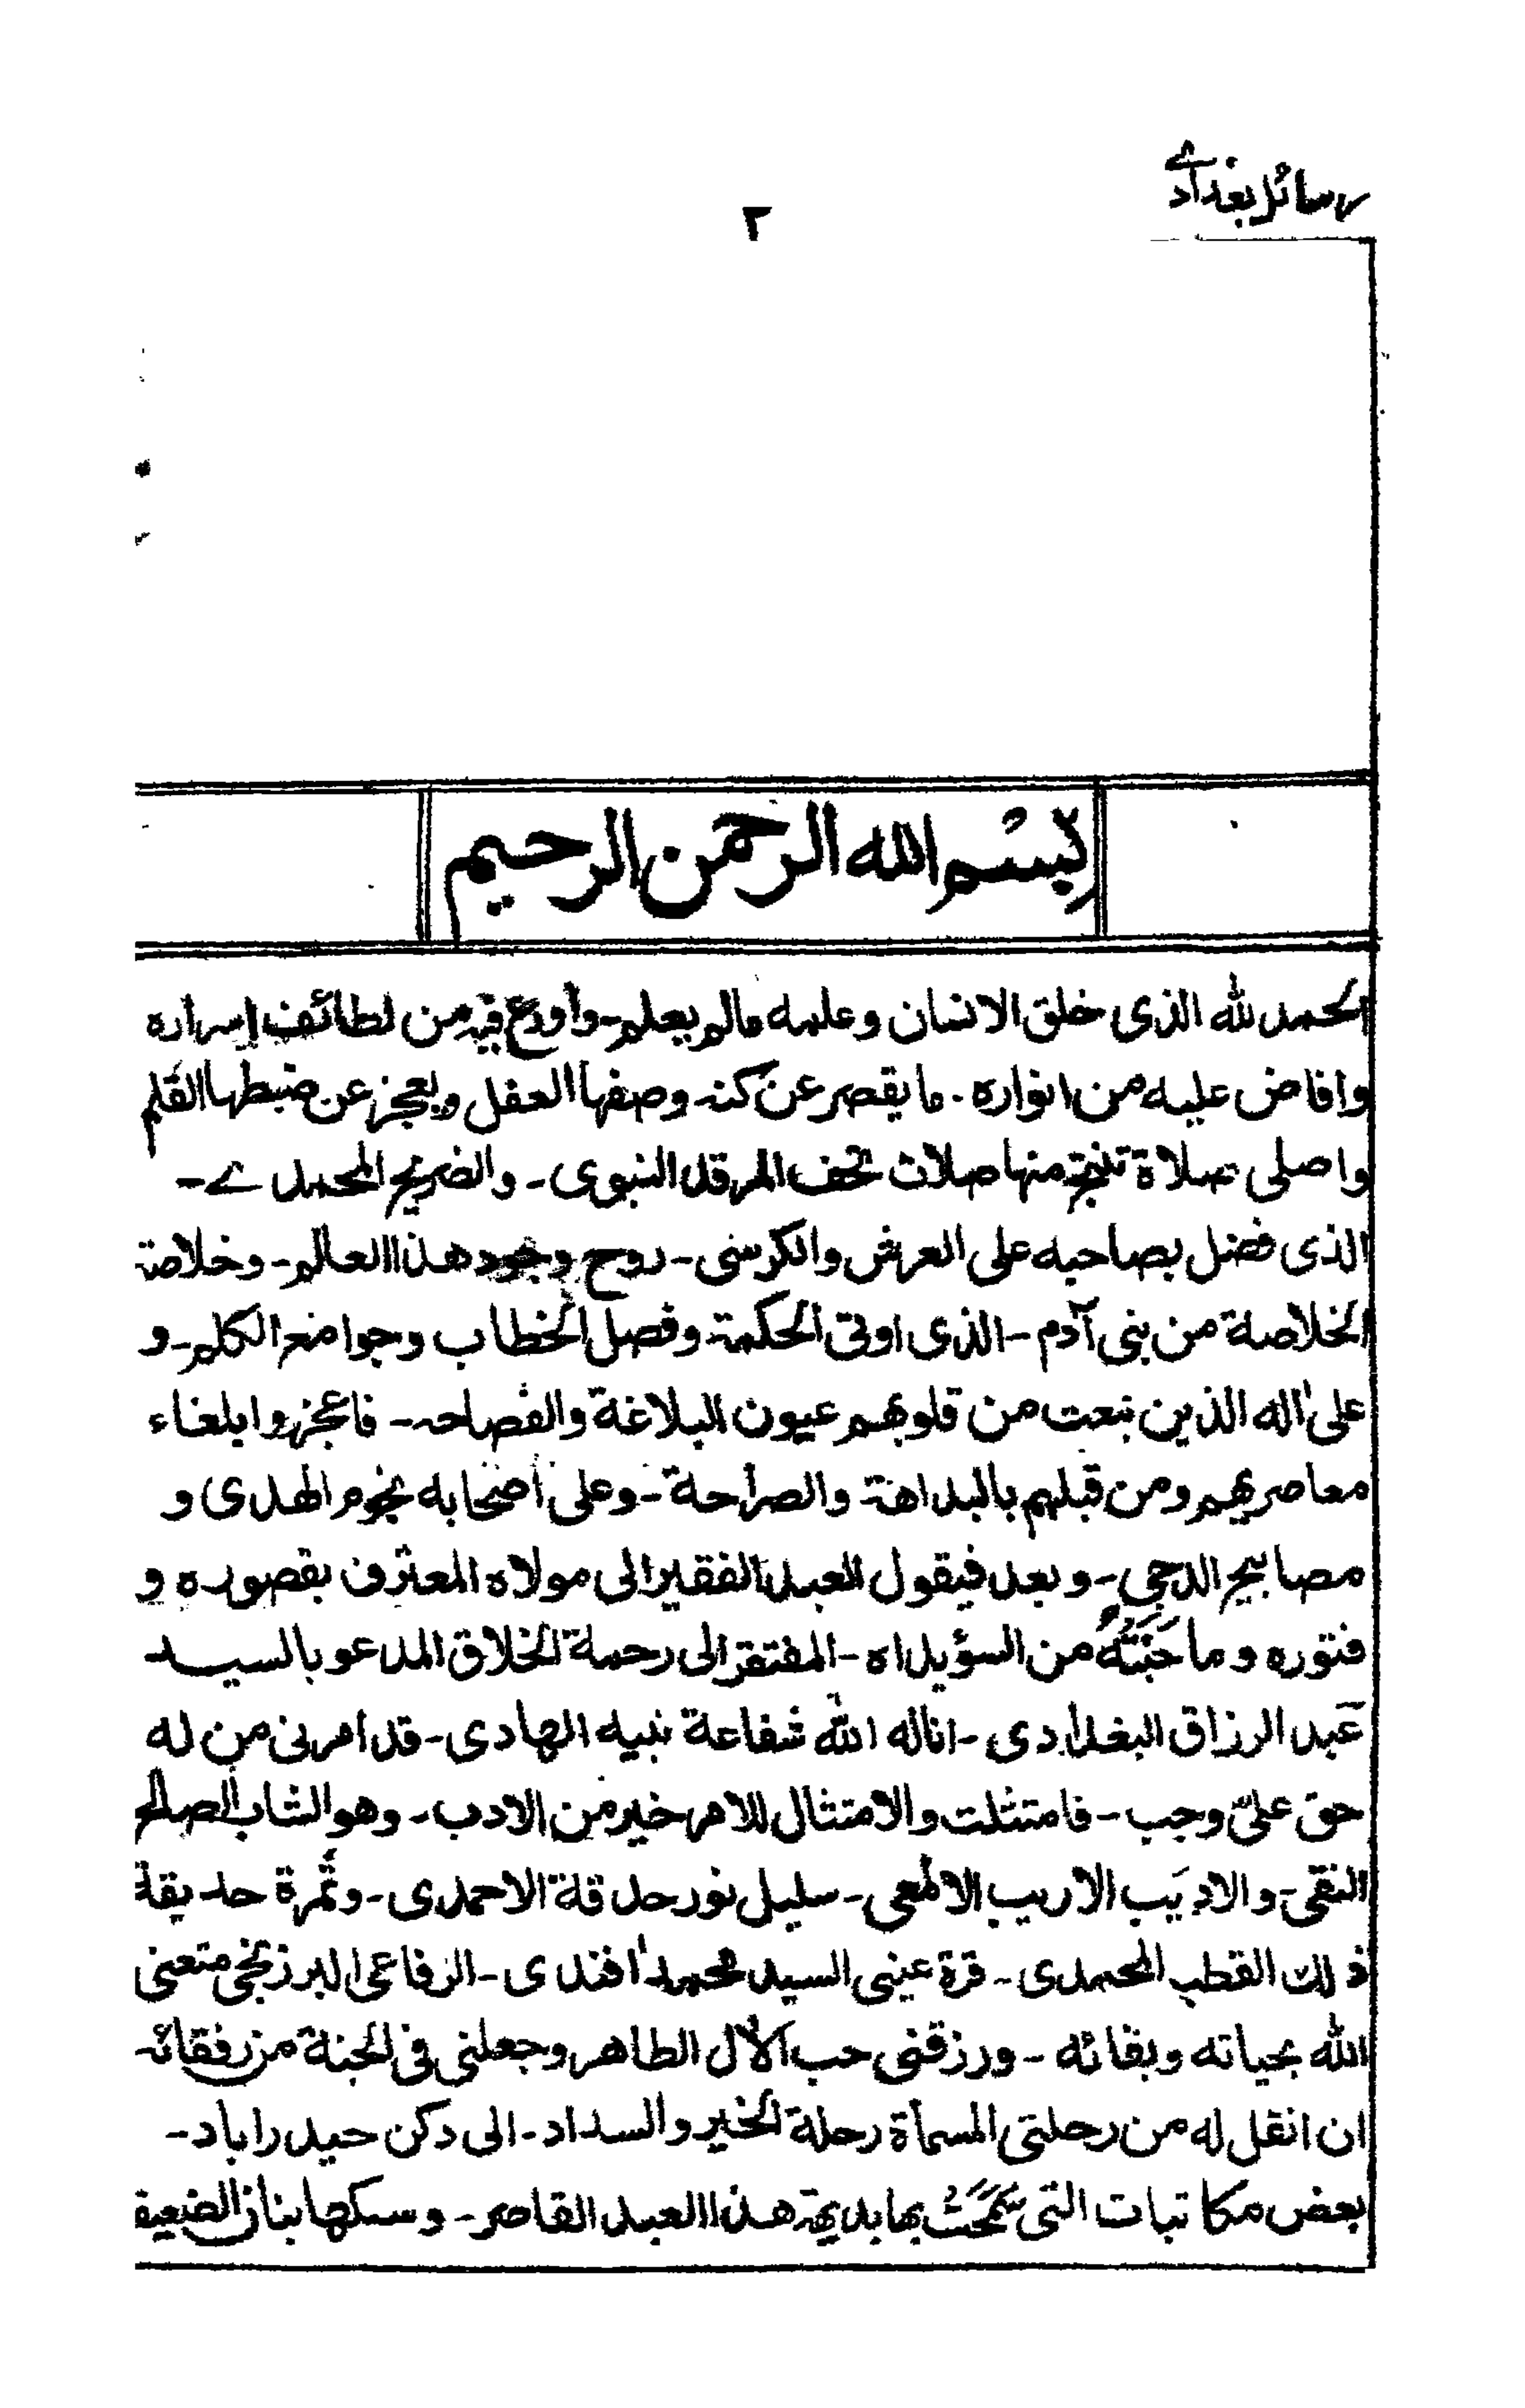 رسائل بغدادے
٢
بسم الله الرحمن الرحيم
الحمد لله الذى خلق الانسان وعلمه مالم يعلم - وأودع فيه من لطائف اسراره
وافاض عليه من انواره . ما يقصر عن كنه وصفها العقل ويعجز عن ضبطها القلم
واصلى صلاة تنتج منها صلات تحف المرقد النبوى - والضريح المحمدے -
الذى فضل بصاحبه على العرش والكرسى - روح وجود هذا العالم - وخلاصة
الخلاصة من بنى آدم - الذى اوتى الحكمة وفصل الخطاب وجوامع الكلم - و
على اله الذين نبعت من قلوبهم عيون البلاغة والفصاحه - فاعجزوا بلغاء
معاصريهم ومن قبلهم بالبداهة والصراحة - وعلى اصحابه نجوم الهدى و
مصابيح الدجى - وبعد فيقول العبد الفقير الى مولاه المعترف بقصوره و
فتوره وما جَنَتْهُ من السؤيداه - المفتقر الى رحمة الخلاق المدعو بالسيد
عبد الرزاق البغدادى - اناله الله شفاعة نبيه الهادى - قد امرنى من له
حق علىّ وجب - فامتثلت والامتثال للامر خير من الادب - وهو الشاب الصالح
النقى - والاديب الاريب الالمعى - سليل نور حدقة الاحمدى - وثمرة حديقة
ذلك القطب المحمدى - قرة عينى السيد محمد افندى - الرفاعى البرزنجى متعنى
الله بحياته وبقائه - ورزقنى حب الآل الطاهر وجعلنى فى الجنة من رفقائه
ان انقل له من رحلتى المسمأة رحلة الخير والسداد - الى دكن حيدراباد -
بعض مكاتبات التى سَمَحَتْ بها بديهة هذا العبد القاصر - وسكها بنان الضعيف